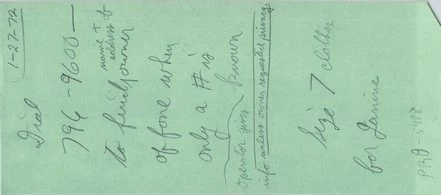 1-27-72
Dial
796-9600—
name &
address of
to find owner
of fone when
only a # is
known
operator gives
info unless owner requested privacy
Size 7 clothes
for Janine